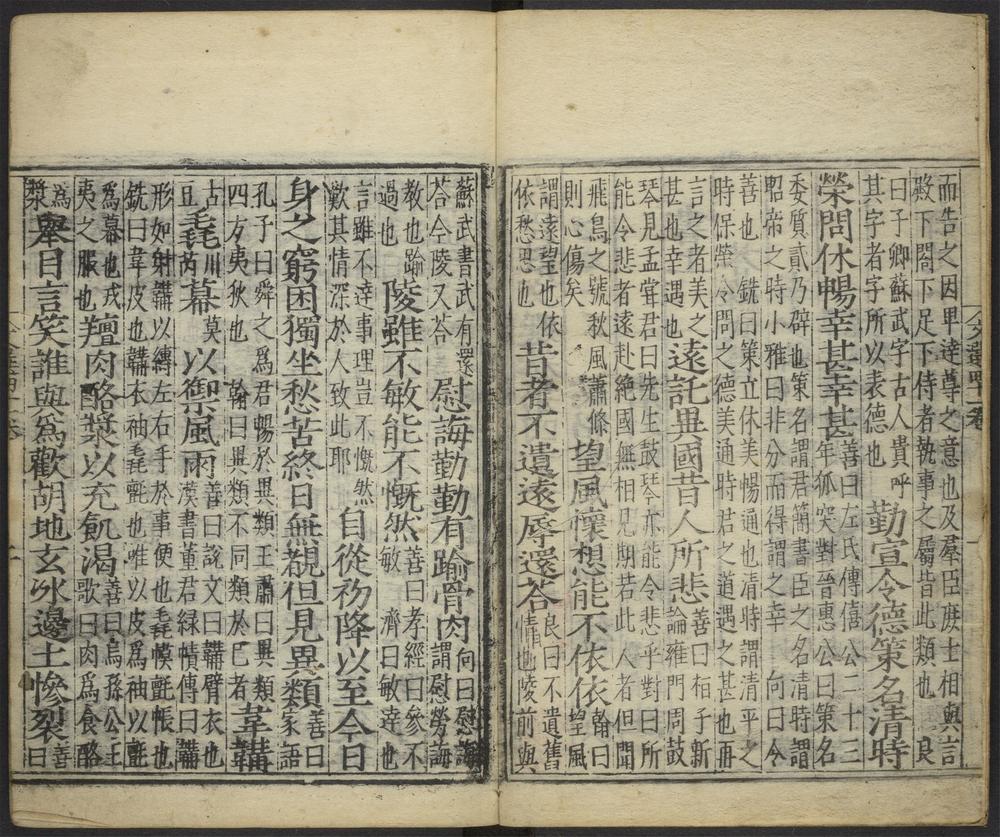 而告之因卑達尊之意也及羣臣庶士相與言
殿下閤下足下侍者執事之屬皆此類也 良
曰子卿蘇武字古人貴呼
其字者字所以表德也
勤宣令德策名清時
榮問休暢幸甚幸甚
善曰左氏傳僖公二十三
年狐突對晉惠公曰策名
委質貳乃辟也策名謂君簡書臣之名清時謂
昭帝之時小雅曰非分而得謂之幸 向曰令
善也 銑曰策立休美暢通也清時謂清平之
時保榮令問之德美通時君之道遇之甚也再
言之者美之
甚也幸遇也
遠託異國昔人所悲
善曰桓子新
論雍門周鼓
琴見孟甞君曰先生鼓琴亦能令悲乎對曰所
能令悲者遠赴絶國無相見期若此人者但聞
飛鳥之號秋風蕭條
則心傷矣
望風懷想能不依依
翰曰
望風
謂遠望也依
依愁思也
昔者不遺遠辱還荅
良曰不遺舊
情也陵前與
蘇武書武有還
荅今陵又荅
慰誨勤勤有踰骨肉
向曰慰誨
謂慰勞誨
教也踰
過也
陵雖不敏能不慨然
善曰孝經曰參不
敏 濟曰敏達也
言雖不達事理豈不慨然
歎其情深於人致此耶
自從初降以至今日
身之窮困獨坐愁苦終日無覩但見異類
善曰
家語
孔子曰舜之爲君暢於異類王肅曰異類
四方夷狄也 翰曰異類不同類於已者
韋韝
古
豆
毳
川
芮
幕
莫
以禦風雨
善曰說文曰韝臂衣也
漢書董君緑幘傳曰韝
形如射韝以縛左右手於事便也毳幙氈帳也
銑曰韋皮也韝衣袖毳氈也唯以皮爲袖以氈
爲幕也戎
夷之服也
羶肉酪漿以充飢渴
善曰烏孫公主
歌曰肉爲食酪
為
漿
舉目言笑誰與爲歡胡地玄冰邊土慘裂
善
曰